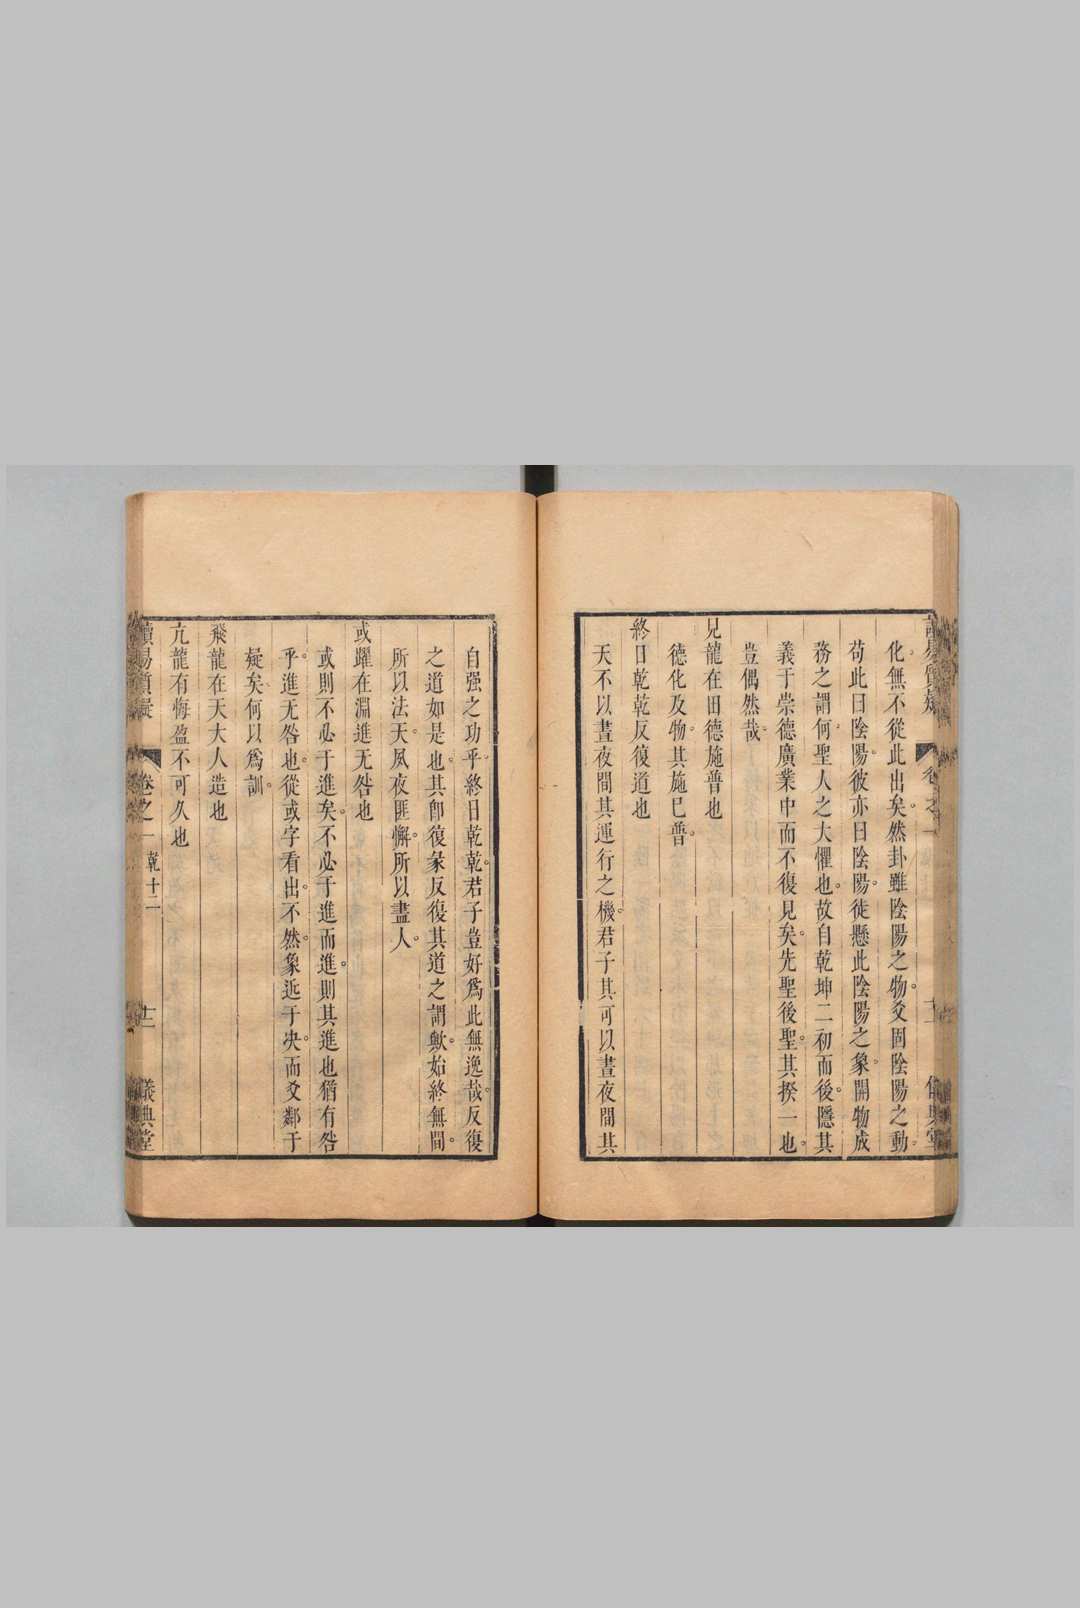 化無不從此出矣。然卦雖陰陽之物。爻固陰陽之動。
苟此曰陰陽。彼亦曰陰陽。徒懸此陰陽之象。開物成
務之謂何。聖人之大懼也。故自乾坤二初而後。隱其
義于崇德廣業中而不復見矣。先聖後聖。其揆一也。
豈偶然哉。
見龍在田德施普也
德化及物。其施已普。
終日乾乾反復道也
天不以晝夜間其運行之機。君子其可以晝夜間其
自强之功乎。終日乾乾。君子豈好爲此無逸哉。反復
之道如是也。其卽復彖反復其道之謂歟。始終無間。
所以法天。夙夜匪懈。所以盡人。
或躍在淵進无咎也
或則不必于進矣。不必于進而進。則其進也猶有咎
乎。進无咎也。從或字看出。不然。象近于决。而爻鄰于
疑矣。何以爲訓。
飛龍在天大人造也
亢龍有悔盈不可久也
讀易質疑 卷之一 乾十二 十二 儀典堂